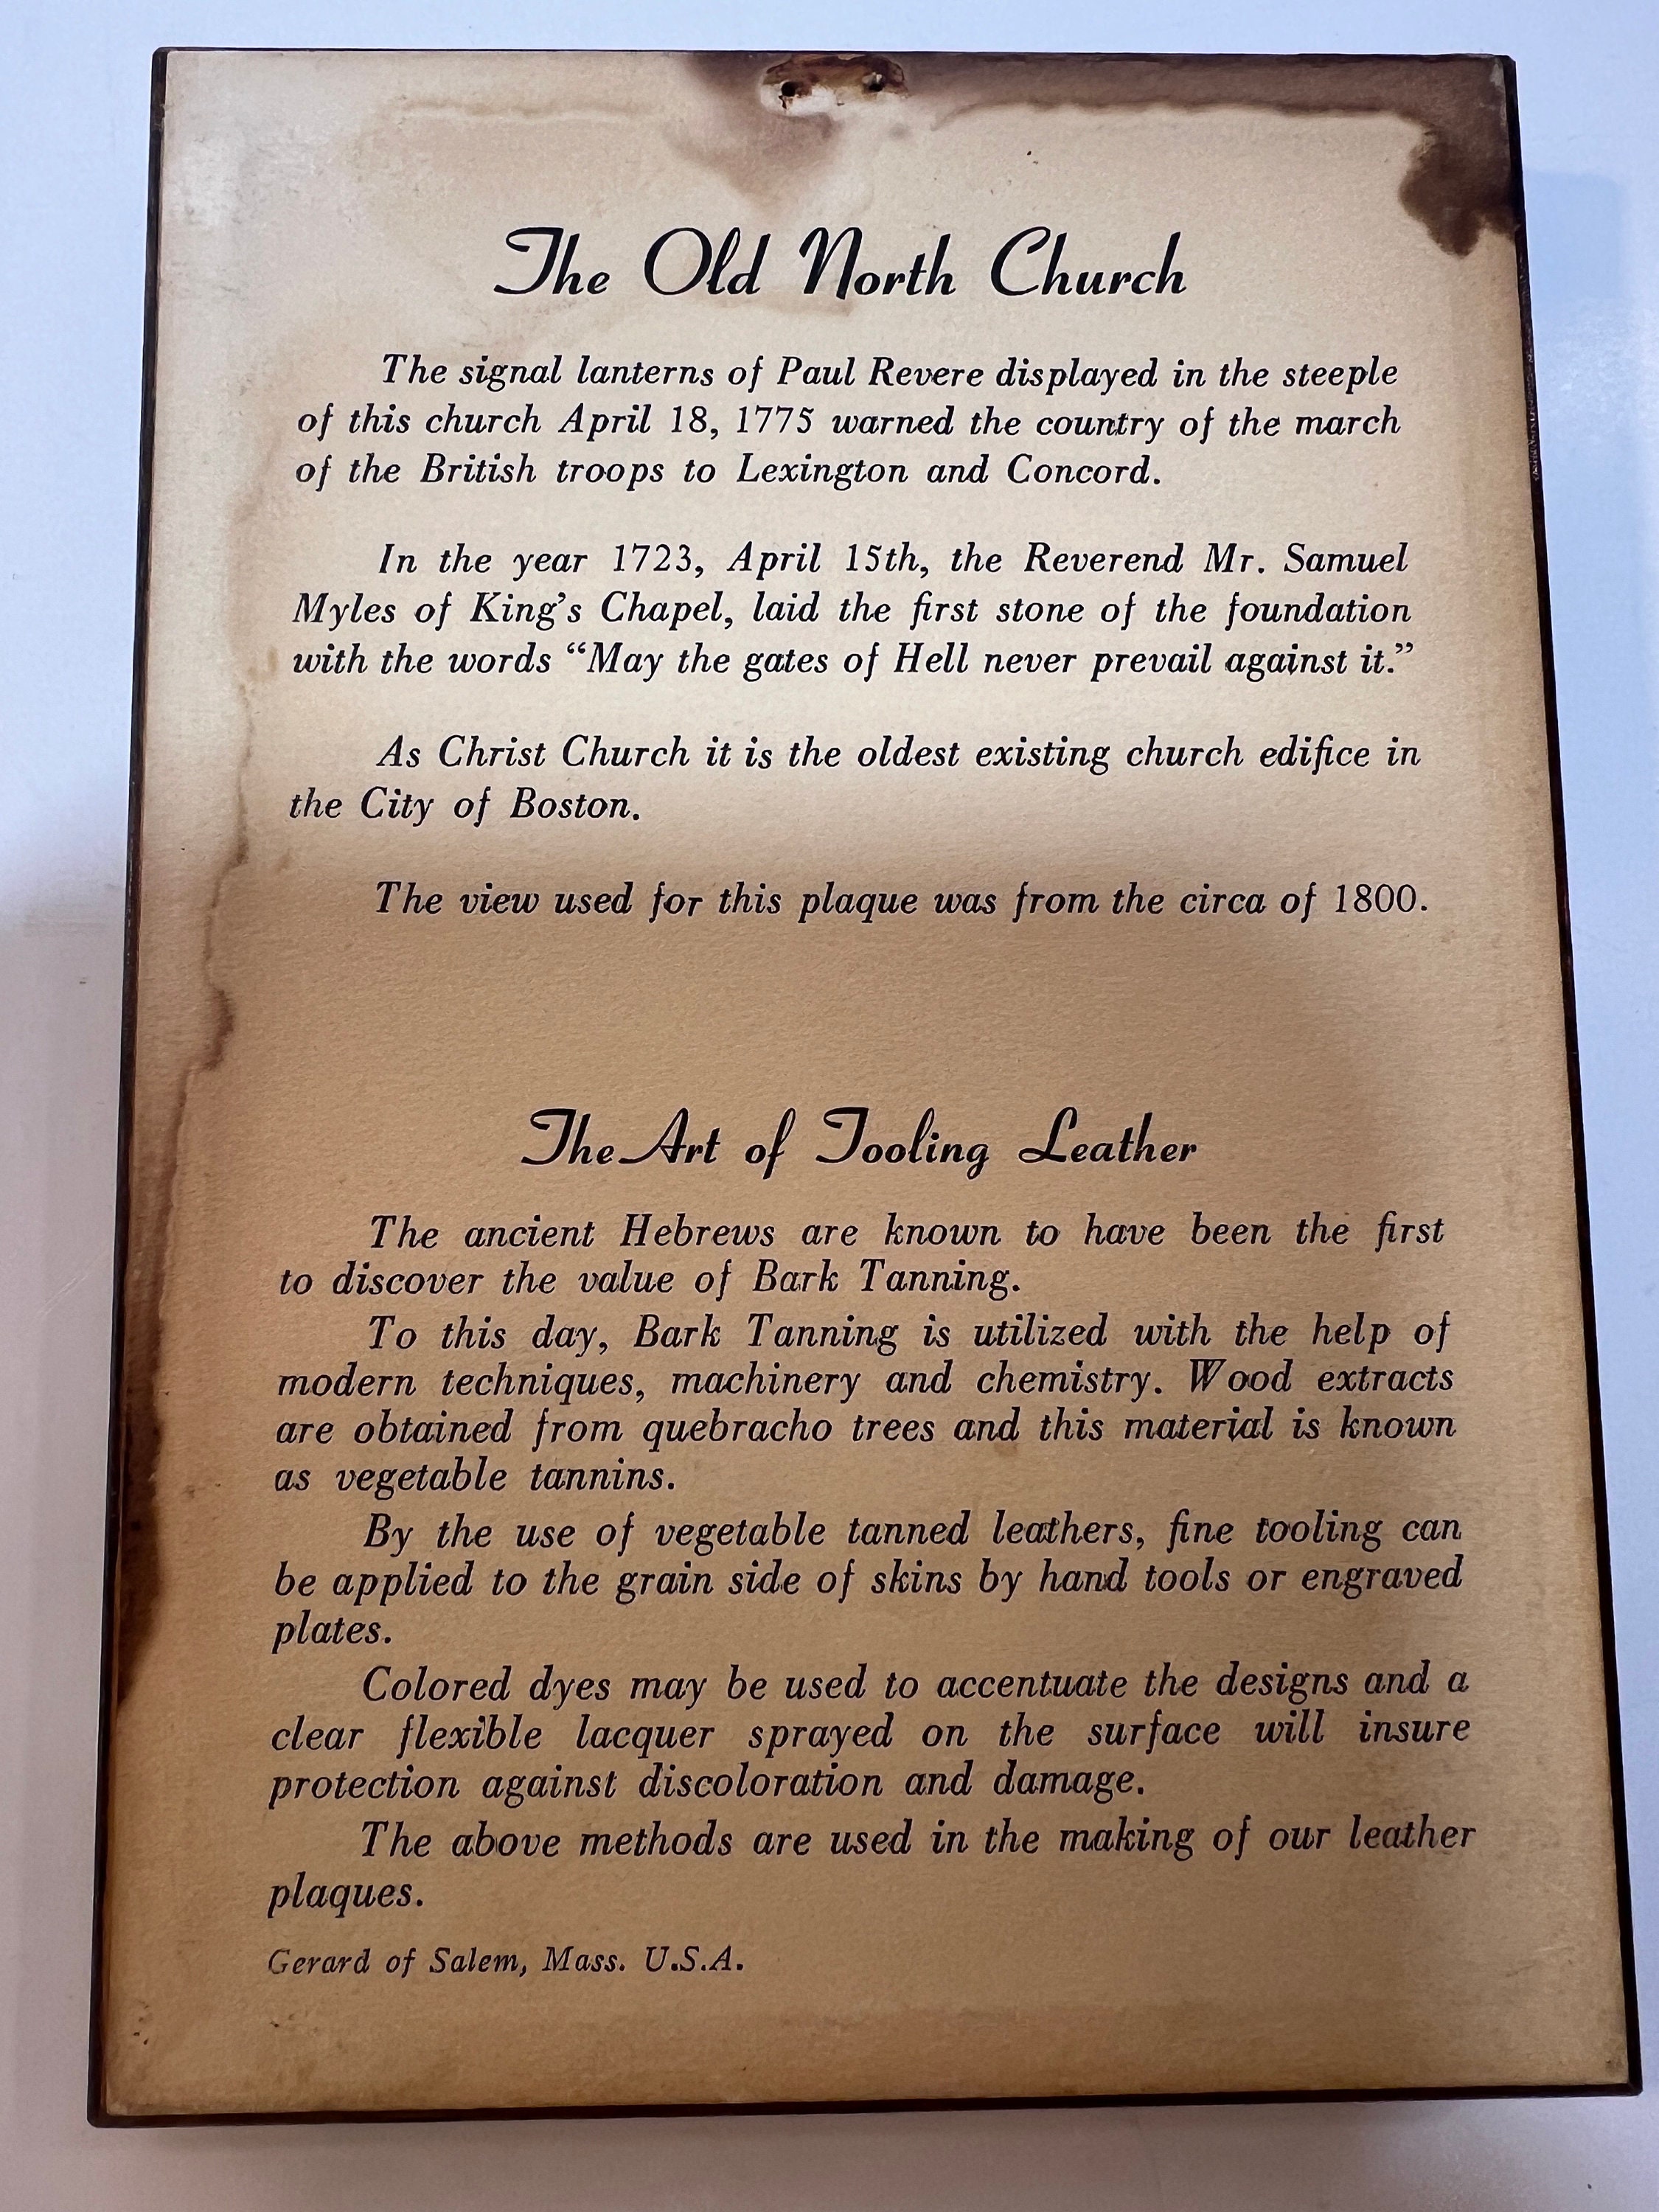 The Old North Church
The signal lanterns of Paul Revere displayed in the steeple
of this church April 18, 1775 warned the country of the march
of the British troops to Lexington and Concord.
In the year 1723, April 15th, the Reverend Mr. Samuel
Myles of King's Chapel, laid the first stone of the foundation
with the words “May the gates of Hell never prevail against it.”
As Christ Church it is the oldest existing church edifice in
the City of Boston.
The view used for this plaque was from the circa of 1800.
The Art of Tooling Leather
The ancient Hebrews are known to have been the first
to discover the value of Bark Tanning.
To this day, Bark Tanning is utilized with the help of
modern techniques, machinery and chemistry. Wood extracts
are obtained from quebracho trees and this material is known
as vegetable tannins.
By the use of vegetable tanned leathers, fine tooling can
be applied to the grain side of skins by hand tools or engraved
plates.
Colored dyes may be used to accentuate the designs and a
clear flexible lacquer sprayed on the surface will insure
protection against discoloration and damage.
The above methods are used in the making of our leather
plaques.
Gerard of Salem, Mass. U.S.A.